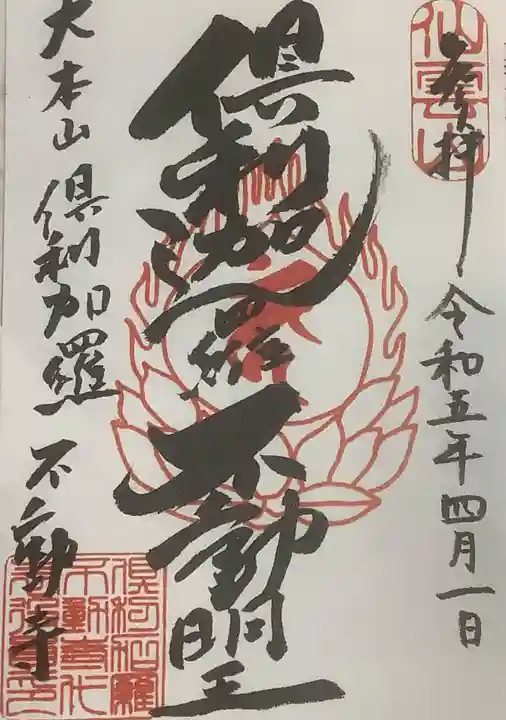 奉拝
令和五年四月一日
倶利迦羅不動明王
大本山 倶利加羅 不動寺